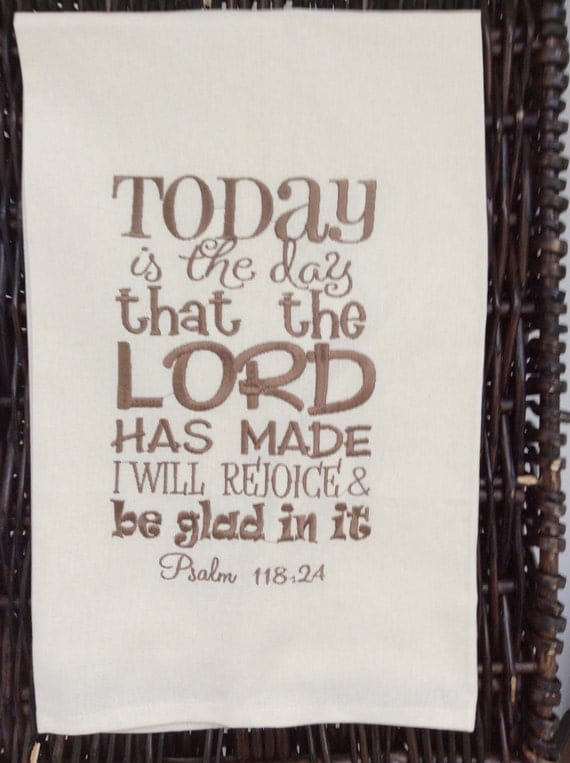 TODay
is the day
that the
LORD
HAS MADE
I WILL REJOICE &
be glad in it
Psalm 118:24